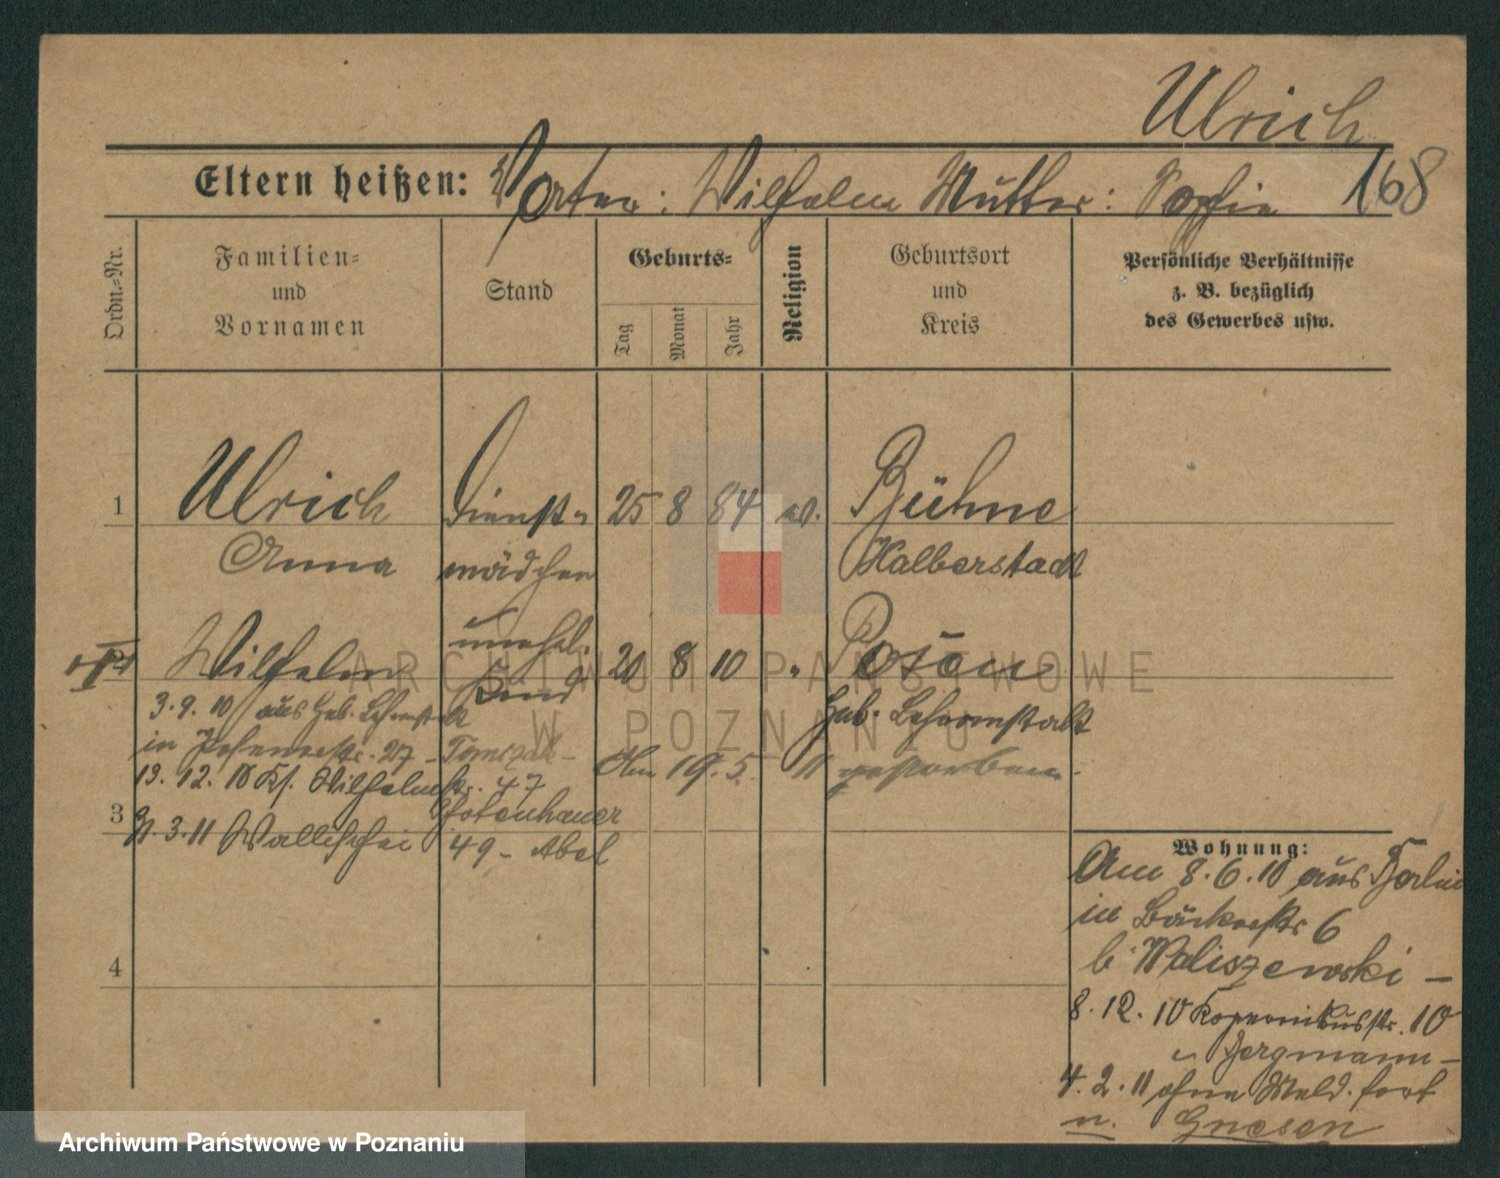 Ulrich
168
Eltern heißen: Vater: Wilhelm Mutter: Sophie
Ordn.-Nr.
Familien- und Vornamen
Stand
Geburts-
Tag
Monat
Jahr
Religion
Geburtsort und Kreis
Persönliche Verhältnisse z. B. bezüglich des Gewerbes usw.
1 Ulrich Dienst- 25 8 84 ev. Bühne
Anna mädchen Halberstadt
Wilhelm unehel. 20 8 10 " Posen
Kind Geb. Lehranstalt
3.9.10 aus Geb. Lehranstalt
in 27 - Tomczak -
Am 19.5. 11 gestorben.
19.12.10 Kf. Wilhelmstr. 47
3 Pfotenhauer
3.11 Wallischei 49 - Abel
4
Wohnung:
Am 8.6.10 aus Berlin
in Bäckerstr 6
b Waliszewski -
8.12.10 Kopernikusstr. 10
Bergmann -
4.2.11 ohne Meld. fort
n. Gnesen
ARCHIWUM PAŃSTWOWE
W POZNANIU
Archiwum Państwowe w Poznaniu